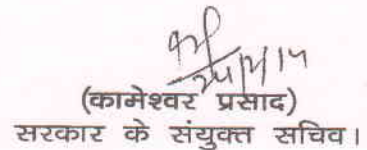 (कामेश्वर प्रसाद)
सरकार के संयुक्त सचिव।